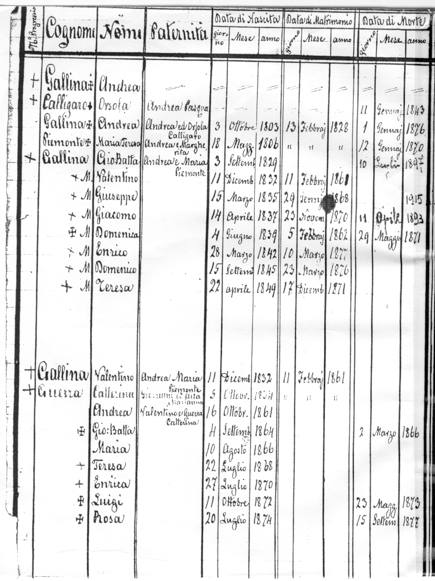 Cognome Nome Paternità Data di Nascita Data di Matrimonio Data di Morte
giorno Mese anno giorno Mese anno giorno Mese anno
Gallina Andrea
Calligaro Orsola Andrea 11 Gennaj 1843
Gallina Andrea Andrea ed Orsola Calligaro 3 Ottobre 1803 13 Febbraj 1828 1 Gennaj 1876
Piemonte Maria Teresa Andrea e Margherita 18 Magg 1806 " " " 12 Gennaj 1870
Gallina Gio Batta Andrea e Maria Piemonte 3 Settemb 1829 10 1897
M Valentino 11 Dicemb 1832 11 Febbraj 1861
M Giuseppe 15 Marzo 1835 29 1868 1915
M Giacomo 14 Aprile 1837 23 Novem 1870 11 Aprile 1893
M Domenica 4 Giugno 1839 5 Febbraj 1862 29 Maggio 1871
M Enrico 28 Marzo 1842 10 Marzo 1877
M Domenico 15 Settemb 1845 23 Marzo 1876
M Teresa 22 aprile 1849 17 Dicemb 1871
Gallina Valentino Andrea Maria Piemonte 11 Dicemb 1832 11 Febbraj 1861
Guerra Catterina 5 Ottobr. " " "
Andrea Valentino e Guerra Catterina 16 Ottobr. 1861
Gio: Batta 4 Settemb 1864 2 Marzo 1866
Maria 10 Agosto 1866
Teresa 22 Luglio 1868
Enrica 27 Luglio 1870
Luigi 11 Ottobre 1872 23 Magg 1873
Rosa 20 Luglio 1874 15 Settem 1877